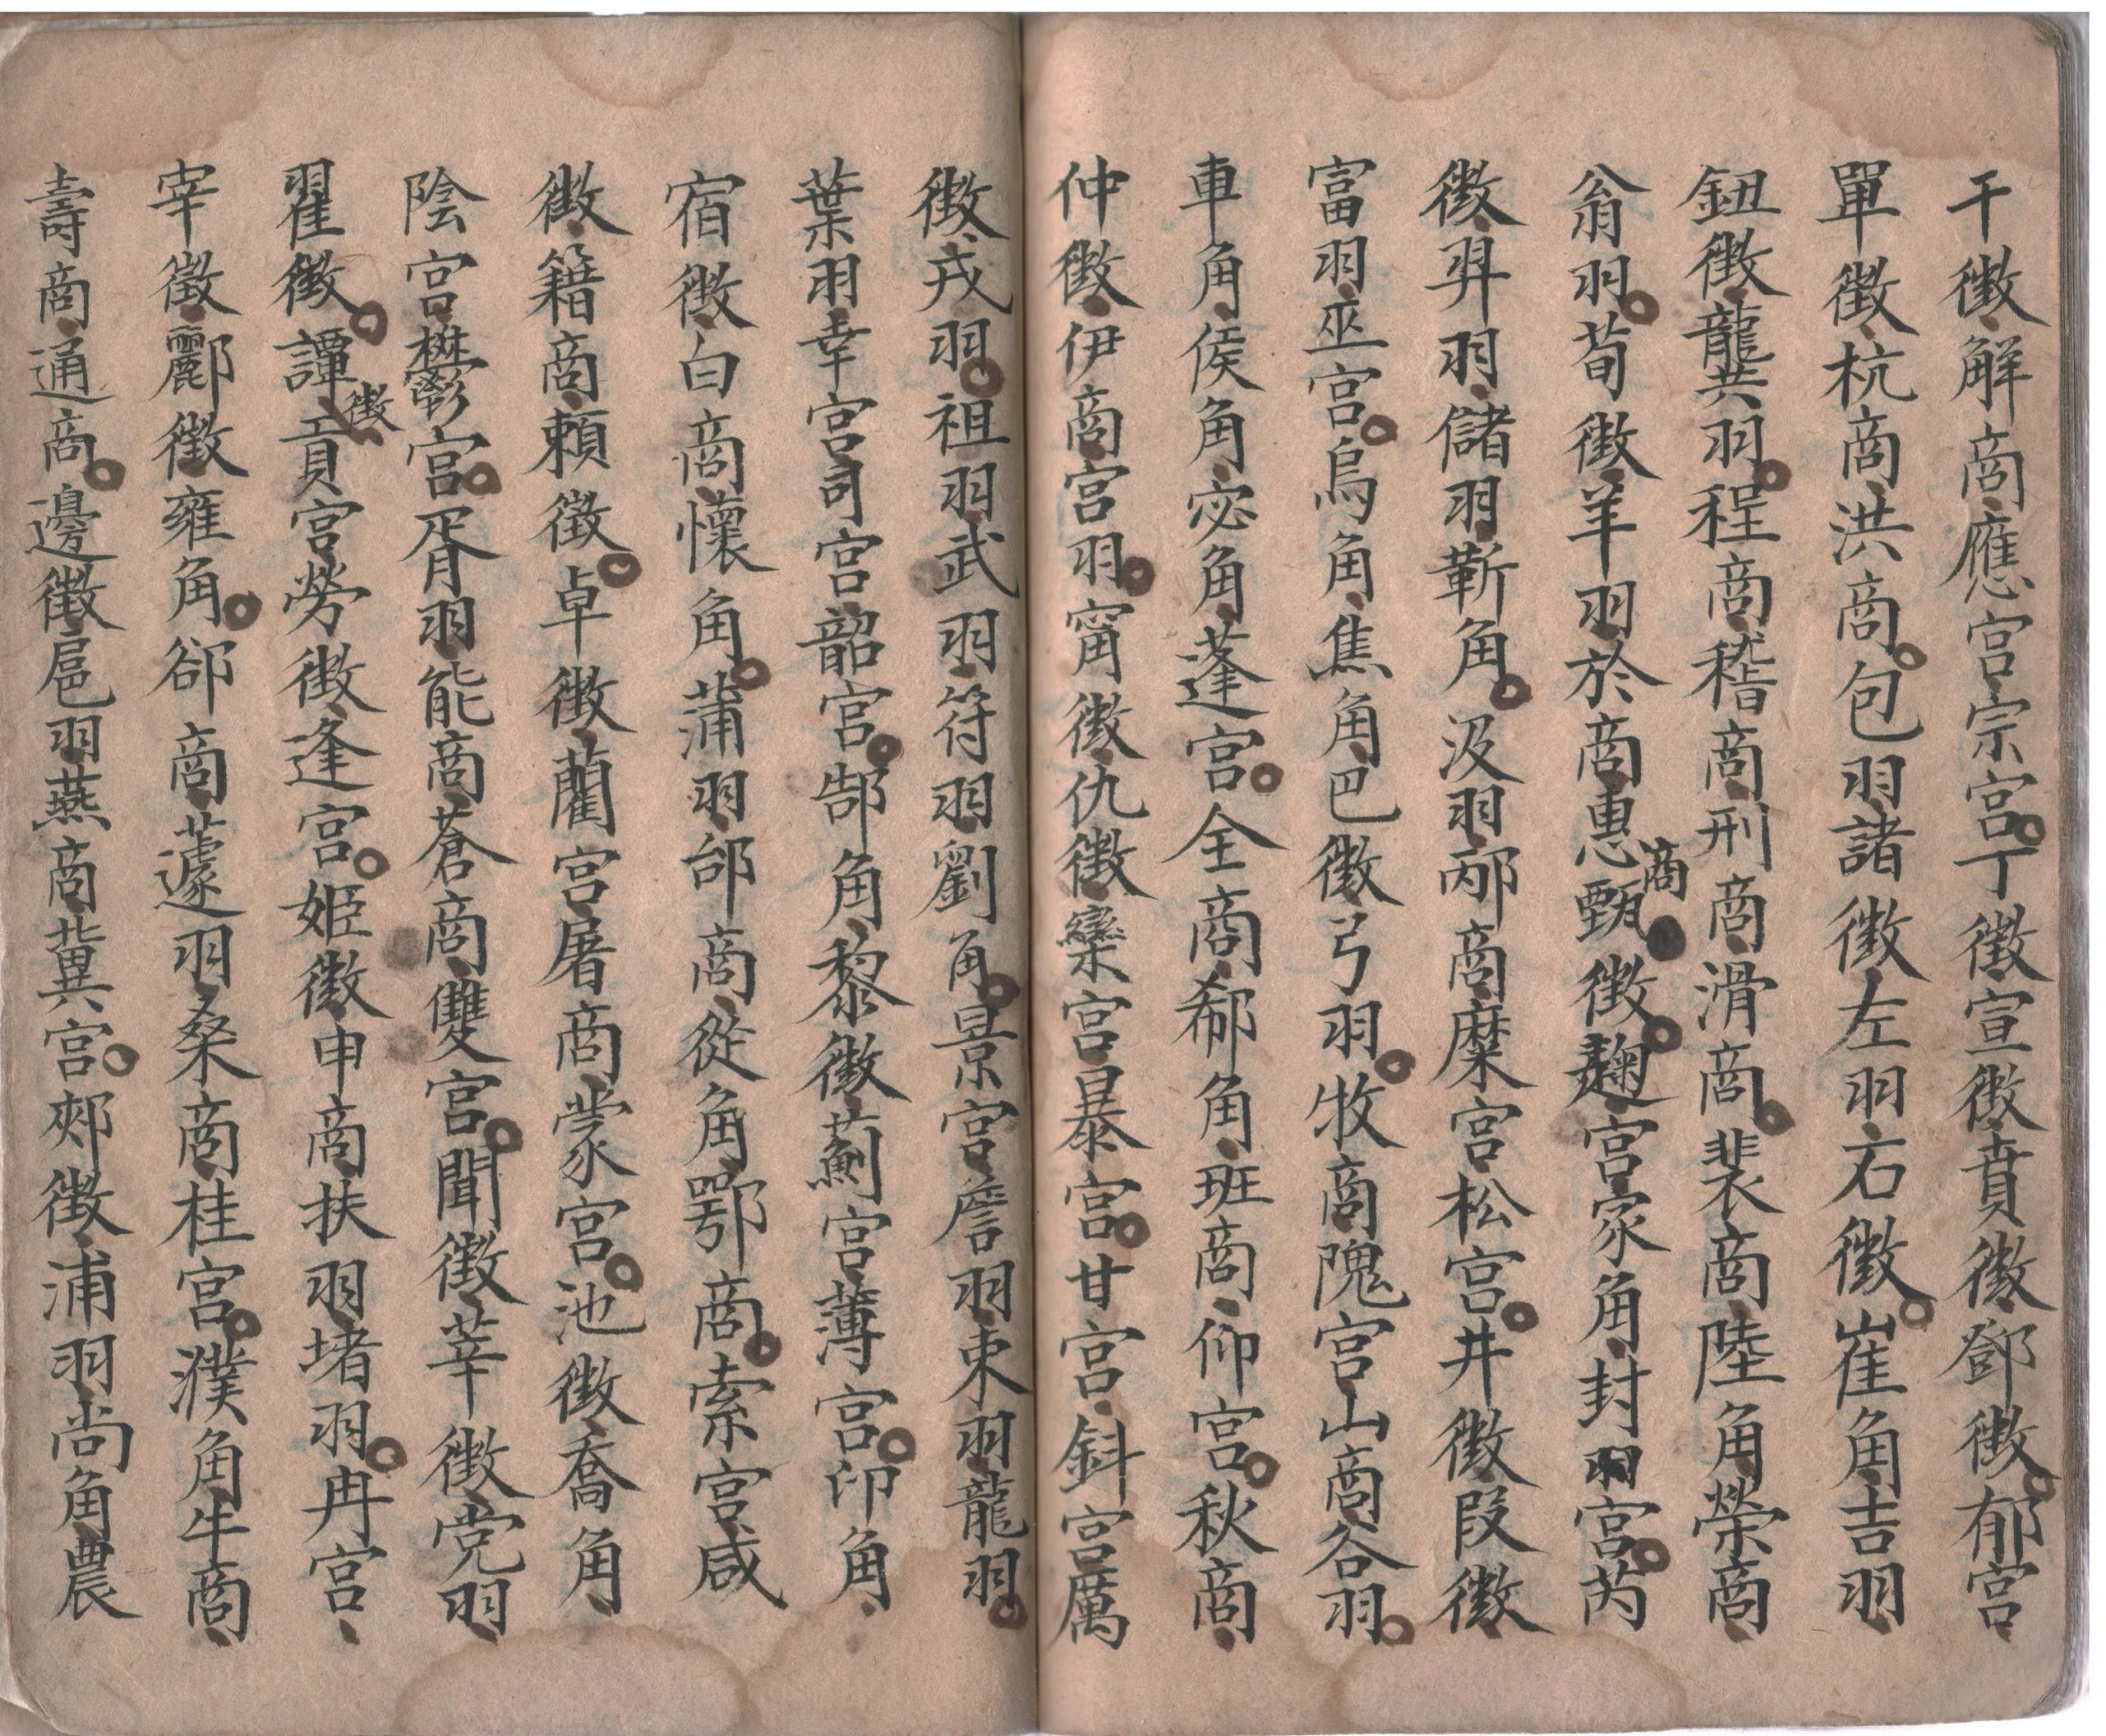 干徵解商應宫宗宫丁徵宣徵賁徵鄧徵郁宫
單徵杭商洪商包羽諸徵左羽右徵崔角吉羽
鈕徵龍共羽程商嵇商刑商滑商裴商陸角榮商
翁羽荀徵羊羽於商惠商甄徵麹宫家角封羽宫芮
徵羿羽儲羽靳角汲羽邴商糜宫松宫井徵段徵
富羽巫宫烏角焦角巴徵弓羽牧商隗宫山商谷羽
車角侯角宓角蓬宫全商郗角班商仰宫秋商
仲徵伊商宫羽甯徵仇徵欒宫暴宫甘宫鈄宫厲
徵戎羽祖羽武羽符羽劉角景宫詹羽束羽龍羽
葉羽幸宫司宫韶宫郜角黎徵薊宫薄宫印角
宿徵白商懷角蒲羽邰商從角鄂商索宫咸
徵籍商賴徵卓徵藺宫屠商蒙宫池徵喬角
陰宫鬱宫胥羽能商蒼商雙宫聞徵莘徵党羽
翟徵譚徵貢宫勞徵逢宫姬徵申商扶羽堵羽冉宫
宰徵酈徵雍角郤商蘧羽桑商桂宫濮角牛商
壽商通商邊徵扈羽燕商冀宫郟徵浦羽尚角農